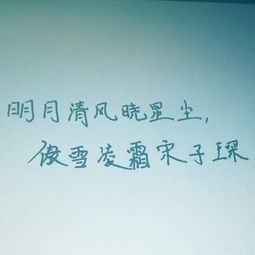 明月清风晓星尘,
傲雪凌霜宋子琛